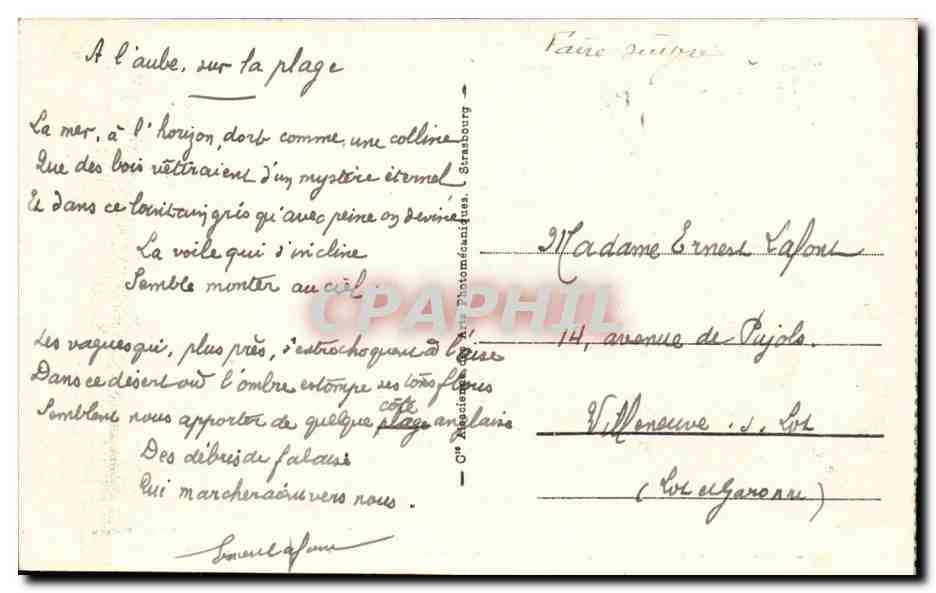 A l'aube, sur la plage
La mer, à l'horizon, dort comme une colline
Que des bois vêtiraient d'un mystère éternel
Et dans ce lointain gris qu'avec peine on devine
La voile qui s'incline
Semble monter au ciel
Les vagues qui, plus près, s'entrochoquent à l'aise
Dans ce désert où l'ombre estompe ses tons flous
Semblent nous apporter de quelque côté plage anglaise
Des débris de falaise
Qui marchera vers nous.
Ernest Lafont
Cie Alsacienne des Arts Photomécaniques. Strasbourg
Faire suivre
Madame Ernest Lafont
14, avenue de Pujols.
Villeneuve. s. Lot
(Lot et Garonne)
CPAPHIL